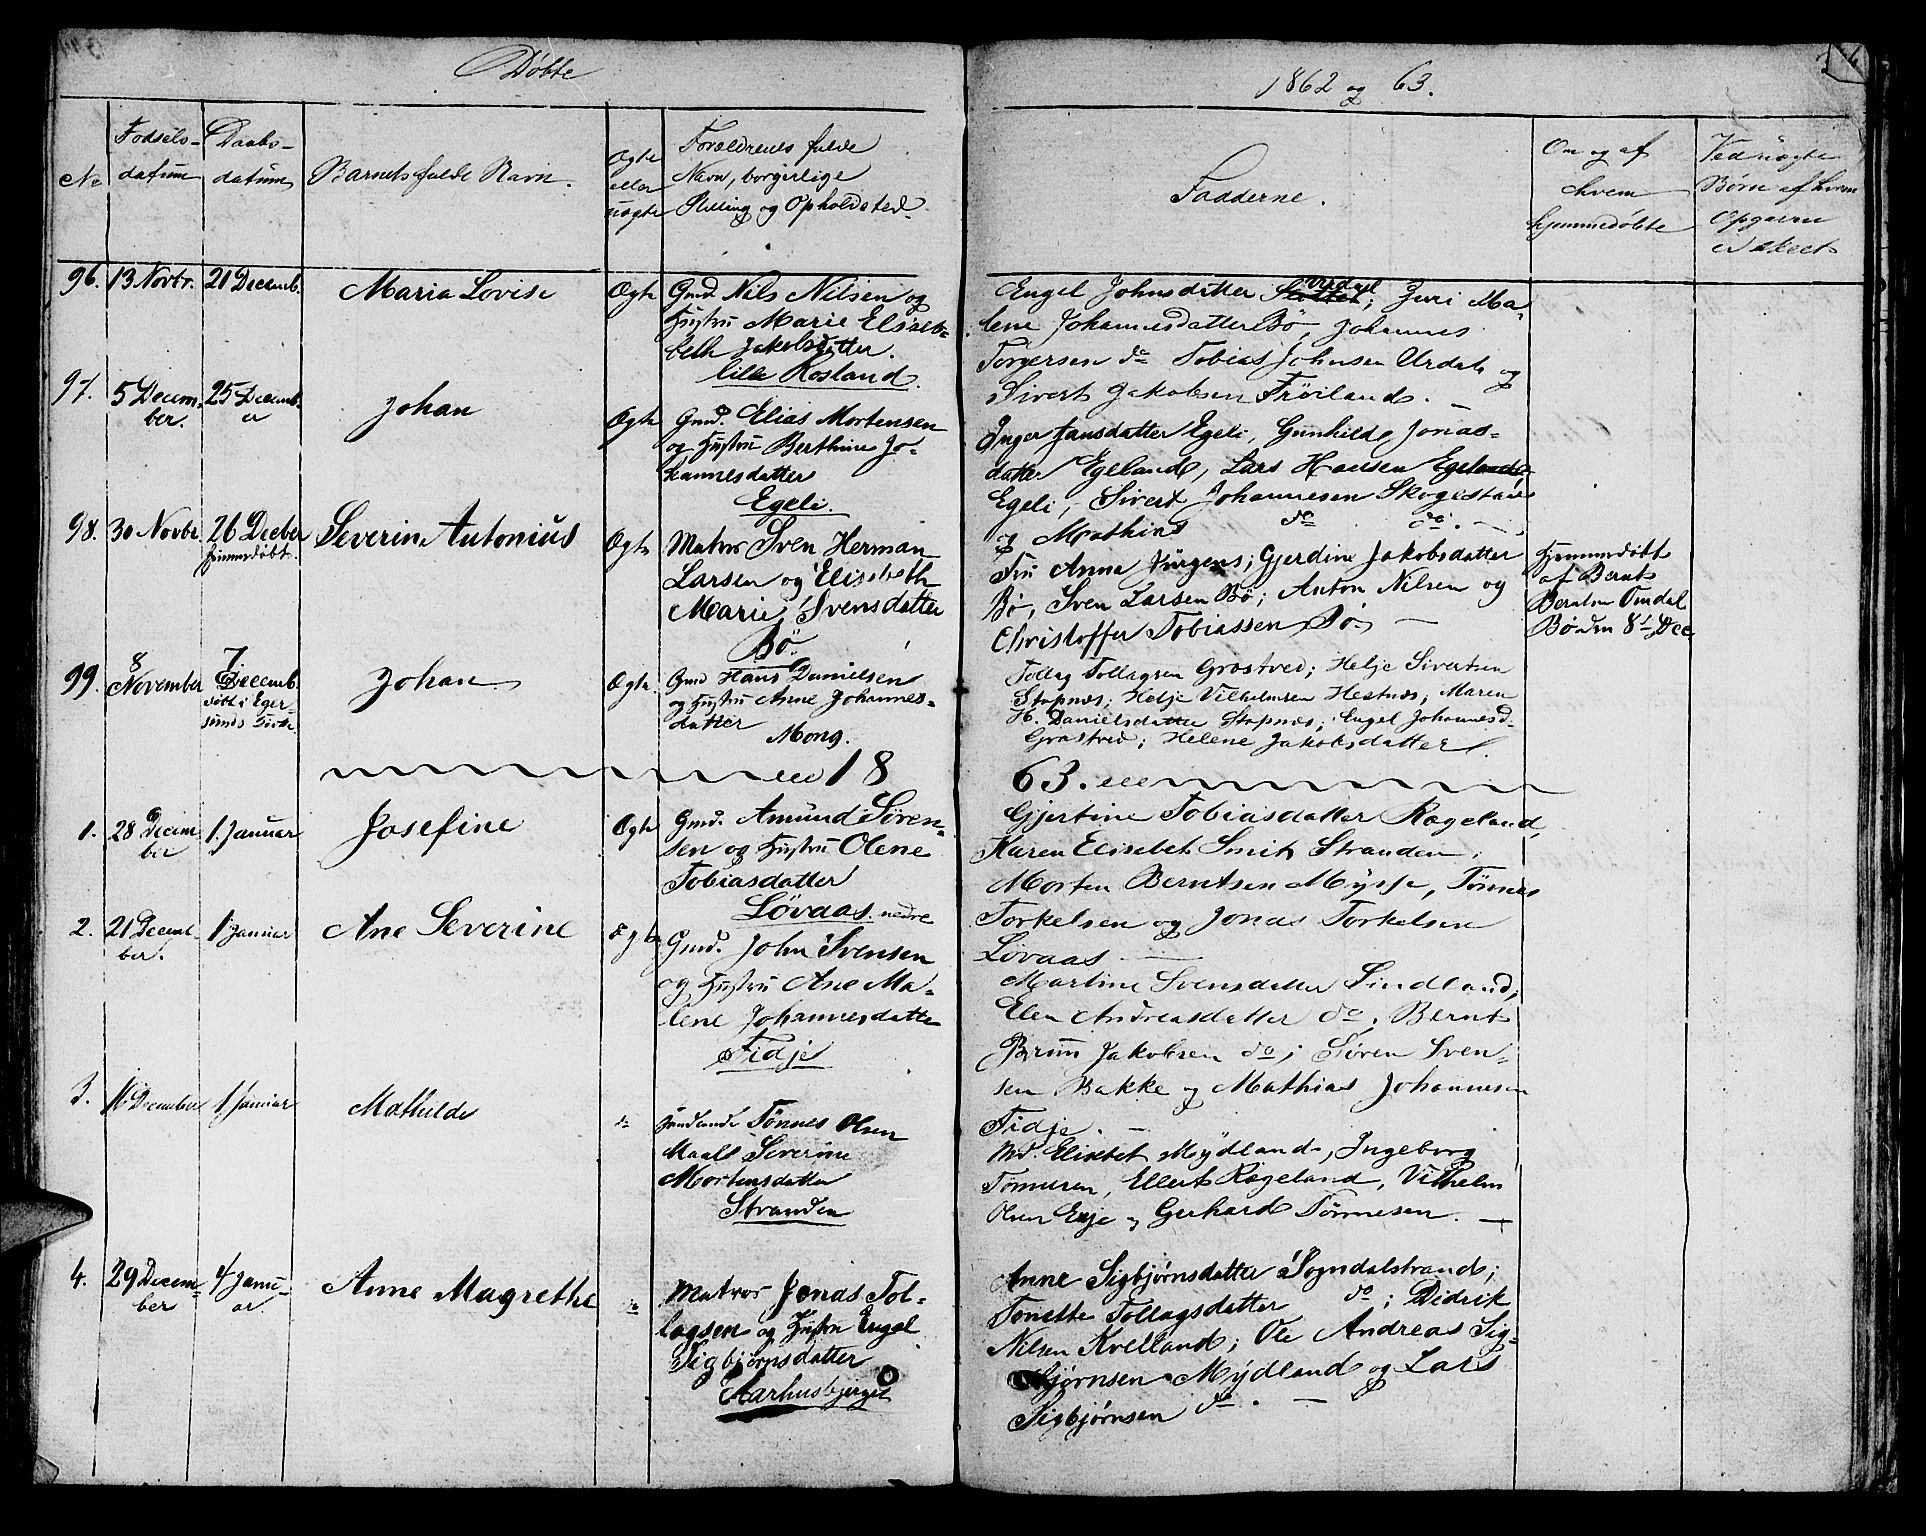 Døbte
1862 og 63.
No
Fødsels-
datum
Daabs-
datum
Barnets fulde Navn.
Ægte
eller
uægte
Forældrenes fulde
Navn, borgerlige
Stilling og Opholdsted.
Fadderne.
Om og af
hvem
hjemmedøbte
Ved uægte
Børn af hvem
Opgaven
er skeet
96. 13 Novbr. 21 Decemb. Maria Lovise Ægte
Gmd. Nils Nilsen og
Hustru Marie Elisab-
beth Jakobsdatter.
lille Rosland.
Engel Johnsdatter Urdal; Juri Ma-
lene Johannesdatter Bø, Johannes
Torgersen do Tobias Johnsen Urdal og
Sivert Jakobsen Frøiland. —
97. 5 Decem- 25 Decemb-
ber. er
Johan Ægte
Gmd. Elias Mortensen
og Hustru Berthine Jo-
hannesdatter
Egeli.
Inger Jansdatter Egeli, Gunhilde Jonas-
datter Egeland, Lars Hansen Egeland
Egeli, Sivert Johannesen Skogestad
og Mathias do do. —
98. 30 Novbr. 26 Decber
hjemmedøbt.
Severin Antonius Ægte
Matros Sven Herman
Larsen og Elisabeth
Marie Svensdatter
Bø.
Fru Anna Jürgens; Gjerdine Jakobsdatter
Bø, Sven Larsen Bø; Anton Nilsen og
Christoffer Tobiassen Bø —
Hjemmedøbt
af Bernt
Berntsen Omdal
Bø den 8de Dec
99. 8 November 7 Decemb.
døbt i Eger-
sunds Kirke.
Johan Ægte
Gmd Hans Danielsen
og Hustru Anne Johannes-
datter
Mong.
Tollag Tollagsen Grøstved; Helje Sivertsen
Stapnæs; Helje Vilhelmsen Hestnæs; Maren
H. Danielsdatter Stapnæs; Engel Johannesd.
Grøstved; Helene Jakobsdatter
18 63.
1. 28 Decem 1. Januar
ber
Josefine Ægte
Gmd. Amund Søren-
sen og Hustru Olene
Tobiasdatter
Løvaas nedre
Gjertine Tobiasdatter Rægeland,
Karen Elisebet Smith Stranden;
Morten Berntsen Mysse, Tønnes
Torkelsen og Jonas Torkelsen
Løvaas —
2. 21 Decem- 1 Januar
ber.
Ane Severine Ægte
Gmd. John Svensen
og Hustru Ane Ma-
lene Johannesdatter
Fidje
Martine Svensdatter Sindland,
Elen Andreasdatter do, Bernt
Bruun Jakobsen do; Søren Sven-
sen Bakke og Mathias Johannesen
Fidje. —
3. 16 December 1 Januar Mathilde do
Handlende Tønnes Olsen
Maale Severine
Mortensdatter
Stranden
Md. Elisebet Mydland, Ingeborg
Tønnesen, Ellert Rægeland, Vilhelm
Olsen Eeje og Gerhard Tønnesen. —
4. 29 Decem- 4 Janu-
ber ar
Anne Magrethe do
Matros Jonas Tol-
lagsen og Hustru Engel
Sigbjørnsdatter
Aarhusbjerget
Anne Sigbjørnsdatter Sogndalstrand;
Tonette Tollagsdatter do; Didrik
Nilsen Kvelland; Ole Andreas Sig-
bjørnsen Mydland og Lars
Sigbjørnsen do. —